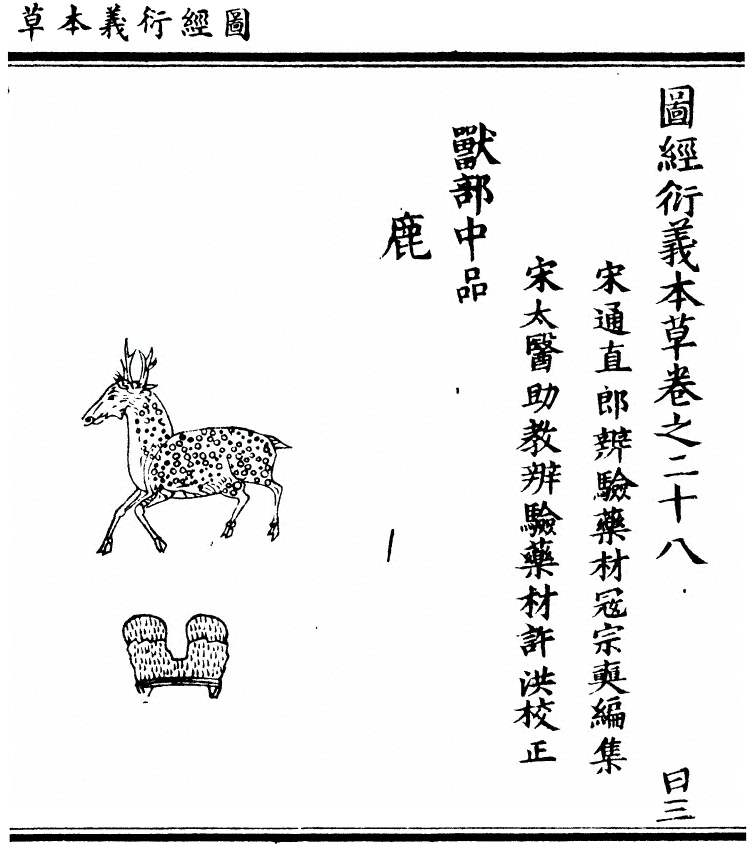 圖經衍義本草
圖經衍義本草卷之二十八
曰三
宋通直郎辨驗藥材寇宗奭編集
宋太醫助教辨驗藥材許洪校正
獸部中品
鹿